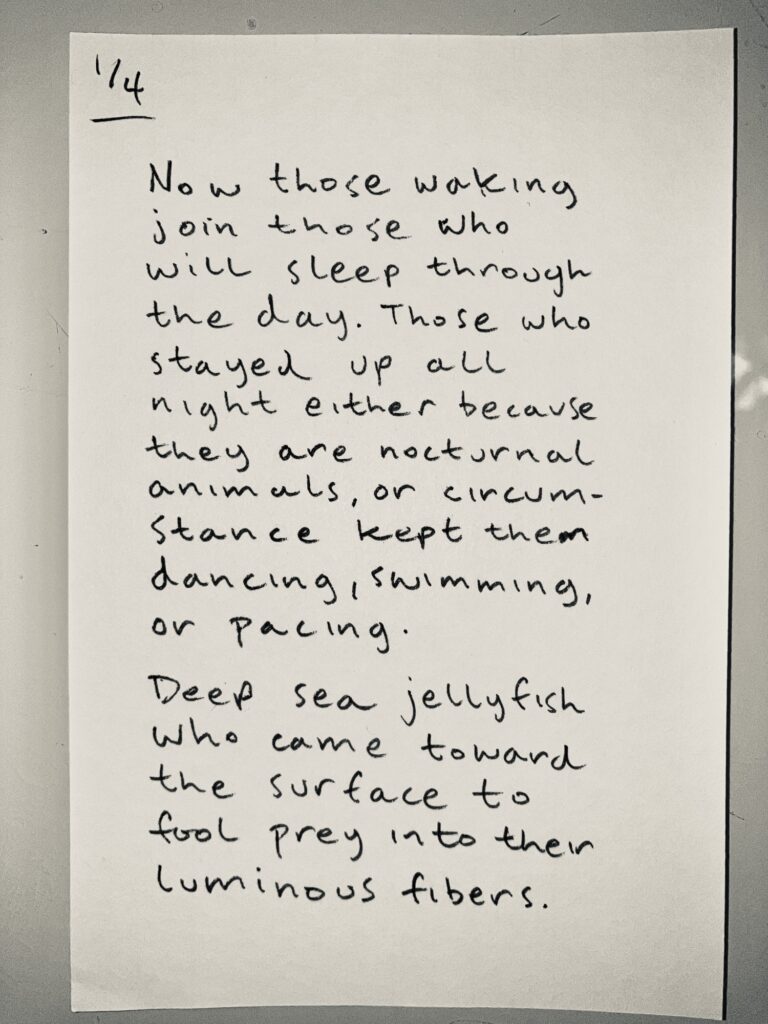 1/4
Now those waking
join those who
will sleep through
the day. Those who
stayed up all
night either because
they are nocturnal
animals, or circum-
stance kept them
dancing, swimming,
or pacing.
Deep sea jellyfish
who came toward
the surface to
fool prey into their
luminous fibers.